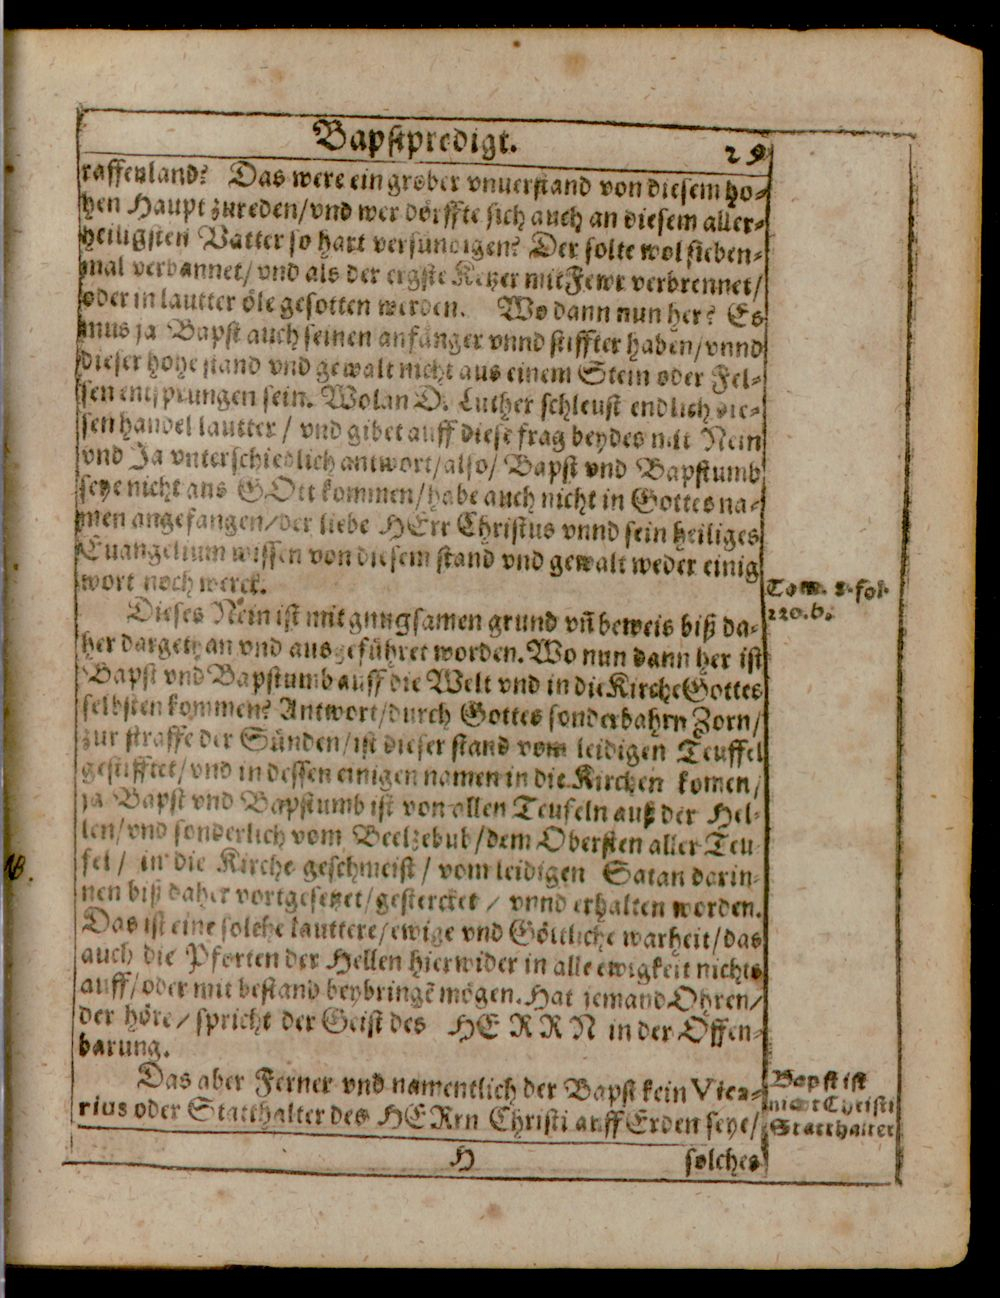 Bapstpredigt. 29
raffenland? Das were ein grober vnuerstand von diesem ho-
hen Haupt zureden/vnd wer dörffte sich auch an diesem aller-
heiligsten Vatter so hart versündigen? Der solte wol sieben-
mal verbannet/ vnd als der ergste Ketzer mit Fewr verbrennet/
oder in lautter öle gesotten werden. Wo dann nun her? Es
mus ja Bapst auch seinen anfänger vnnd stiffter haben/vnnd
dieser hohe stand vnd gewalt nicht aus einem Stein oder Fel-
sen entsprungen sein. Wolan D. Luther schleust endlich die-
sen handel lautter / vnd gibet auff diese frag beydes mit Nein
vnd Ja vnterschiedlich antwort/also/ Bapst vnd Bapstumb
seye nicht ans GOtt kommen/habe auch nicht in Gottes na-
men angefangen/der liebe HErr Christus vnnd sein heiliges
Euangelium wissen von diesem stand vnd gewalt weder einig
wort noch werck.
Tom. 8. fol.
220.b.
Dieses Nein ist mit gnugsamen grund vñ beweis biß da-
her dargethan vnd ausgeführet worden. Wo nun dann her ist
Bapst vnd Bapstumb auff die Welt vnd in die Kirche Gottes
selbsten kommen? Antwort/durch Gottes sonderbahrn Zorn/
zur straffe der Sünden/ist dieser stand vom leidigen Teuffel
gestifftet/vnd in dessen einigen namen in die Kirchen komen/
ja Bapst vnd Bapstumb ist von allen Teufeln auß der Hel-
len/vnd sonderlich vom Beelzebub/dem Obersten aller Teu
fel / in die Kirche geschmeist / vom leidigen Satan darin-
nen biß daher vortgesetzet/gestercket / vnnd erhalten worden.
Das ist eine solche lauttere/ewige vnd Göttliche warheit/das
auch die Pforten der Hellen hierwider in alle ewigkeit nichts
auff/oder mit bestand beybringē mögen. Hat jemand Ohren/
der höre/ spricht der Geist des HERRN in der Offen-
barung.
Das aber Ferner vnd namentlich der Bapst kein Vica-
rius oder Statthalter des HERrn Christi auff Erden seye/
Bapst ist
nicht Christi
Statthalter
H solches